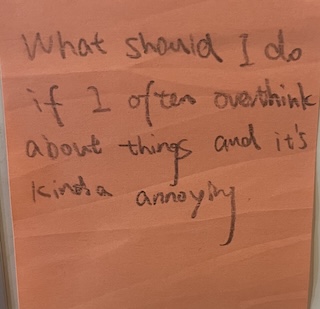 What should I do
if I often overthink
about things and it's
kinda annoying